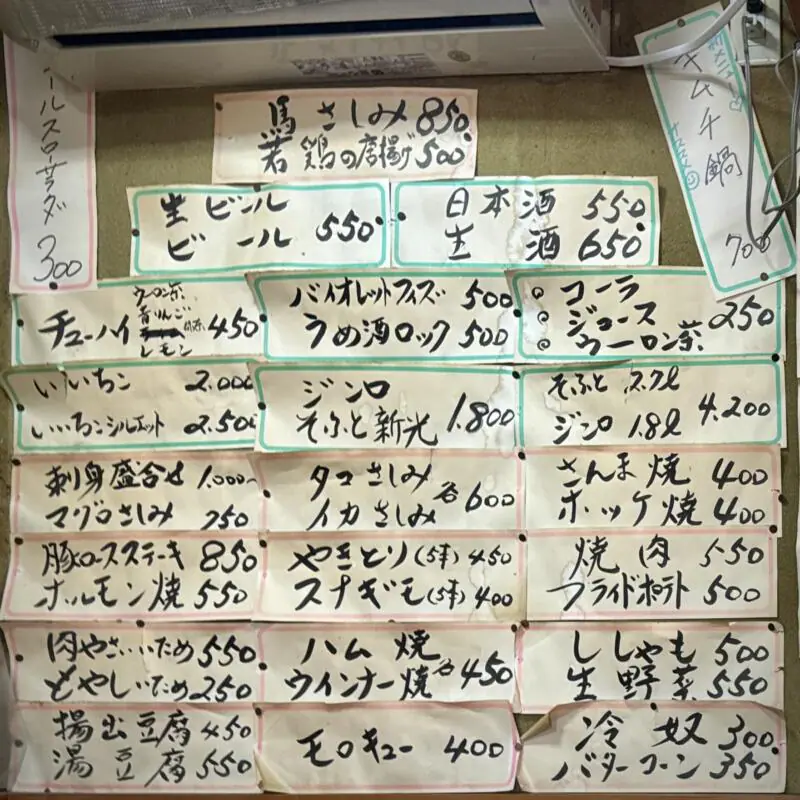 ールスローサラダ
300
馬さしみ 850
若鶏の唐揚げ 500
キムチ鍋
700
生ビール
ビール
550
日本酒 550
生酒 650
チューハイ
ウーロン茶
青りんご
レモン
450
バイオレットフィズ 500
うめ酒ロック 500
コーラ
ジュース
ウーロン茶
250
いいちこ 2.000
いいちこシルエット 2.500
ジンロ
そふと新光
1.800
そふと 2.7ℓ
ジンロ 1.8ℓ
4.200
刺身盛合せ 1.000~
マグロさしみ 750
タコさしみ
イカさしみ
各600
さんま焼 400
ホッケ焼 400
豚ロースステーキ 850
ホルモン焼 550
やきとり(5本) 450
スナギモ(5本) 400
焼肉 550
フライドポテト 500
肉やさいいため 550
もやしいため 250
ハム焼
ウインナー焼
各450
ししゃも 500
生野菜 550
揚出豆腐 450
湯豆腐 550
モロキュー 400
冷奴 300
バターコーン 350